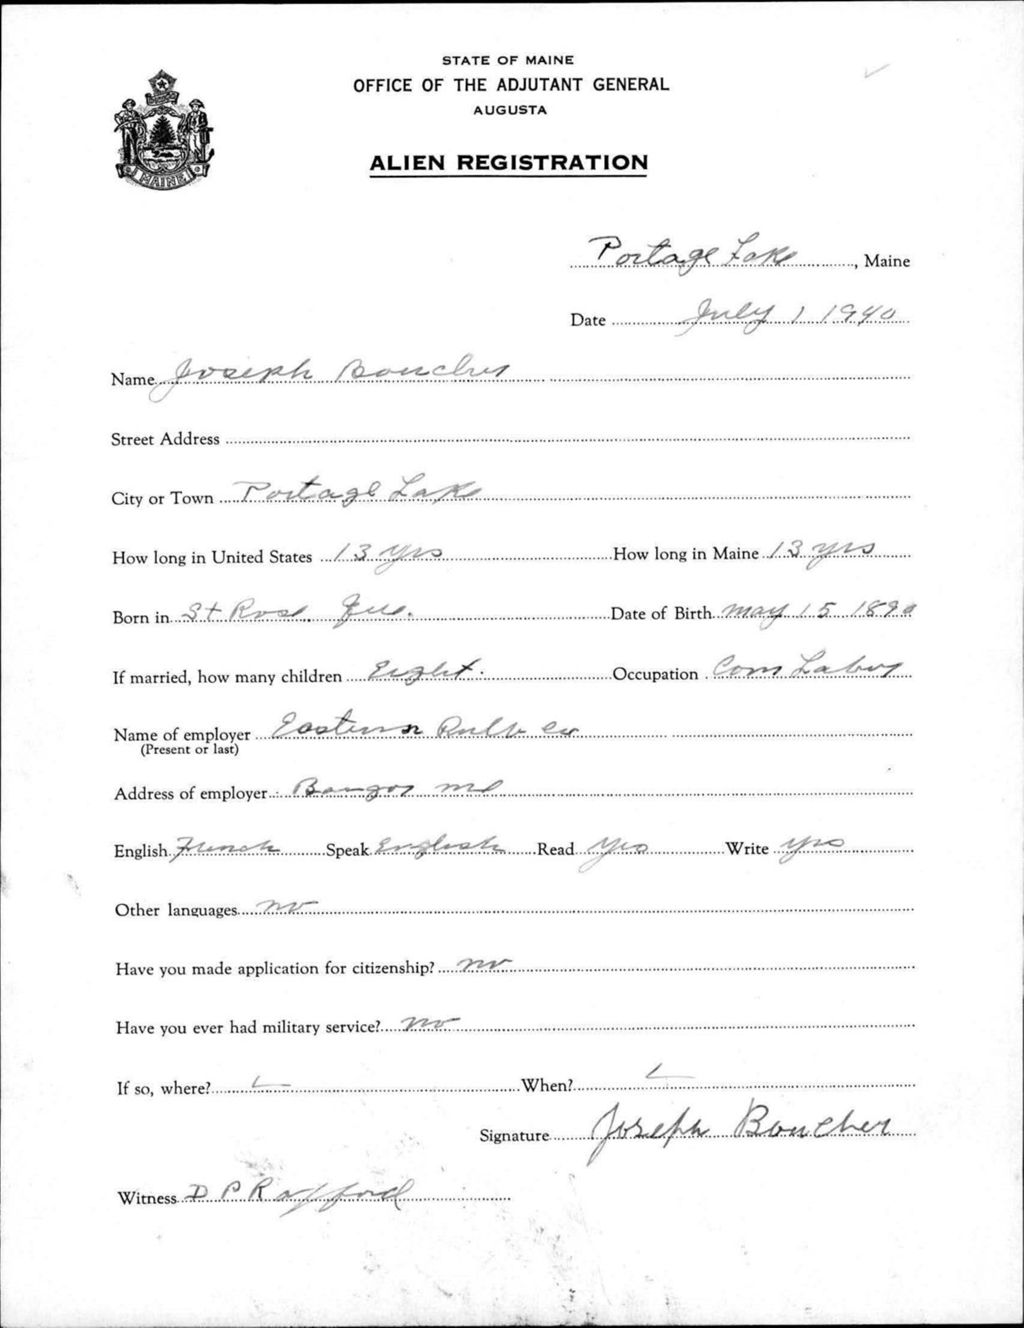 STATE OF MAINE
OFFICE OF THE ADJUTANT GENERAL
AUGUSTA
ALIEN REGISTRATION
MAINE
Portage Lake, Maine
Date July 1 1940
Name Joseph Boucher
Street Address
City or Town Portage Lake
How long in United States 13 yrs How long in Maine 13 yrs
Born in St Rose, Que. Date of Birth May 15 1890
If married, how many children Eight. Occupation Com Labor
Name of employer Eastern Pulp Co
(Present or last)
Address of employer Bangor Me
English French Speak English Read Yes Write Yes
Other languages no
Have you made application for citizenship? no
Have you ever had military service? no
If so, where? When?
Signature Joseph Boucher
Witness D P Rafford